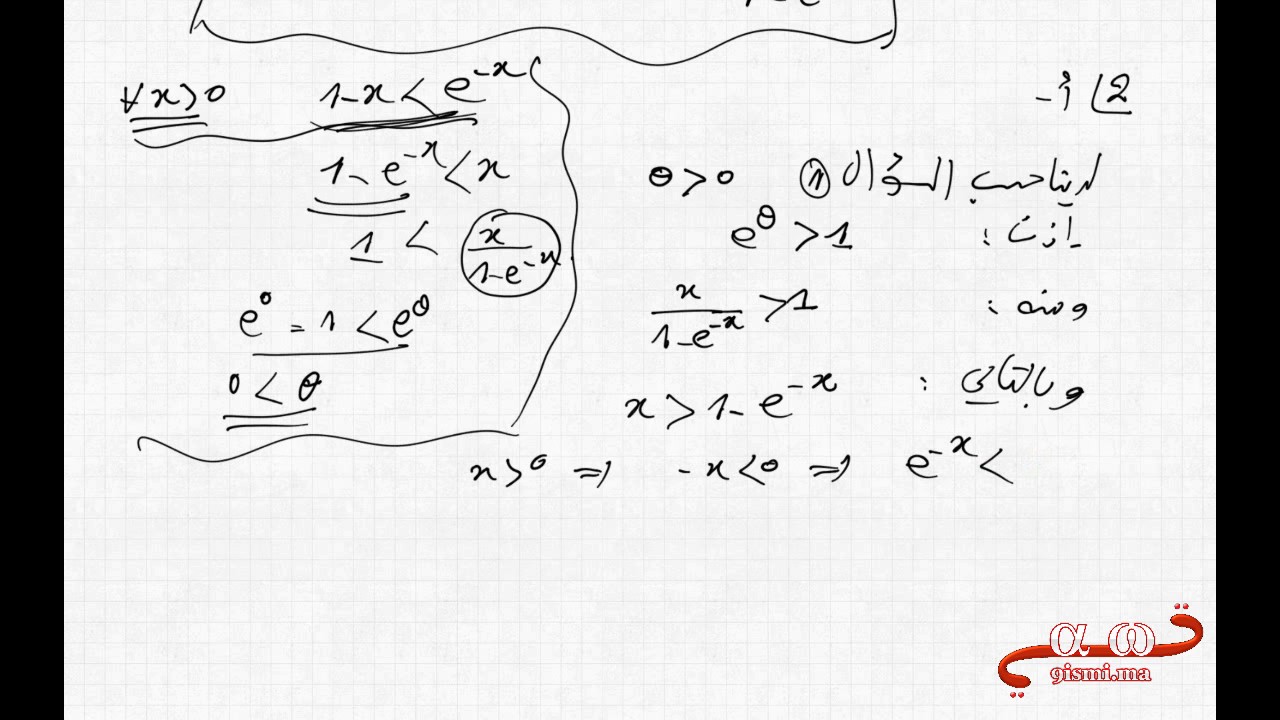 ∀x>0 1-x < e^{-x}
1-e^{-x} < x
1 < x/(1-e^{-x})
e^0 = 1 < e^θ
0 < θ
2) أ-
لدينا حسب السؤال (1) θ > 0
إذن : e^θ > 1
ومنه : x/(1-e^{-x}) > 1
وبالتالي : x > 1-e^{-x}
x>0 ⇒ -x<0 ⇒ e^{-x} <
α ω
9ismi.ma